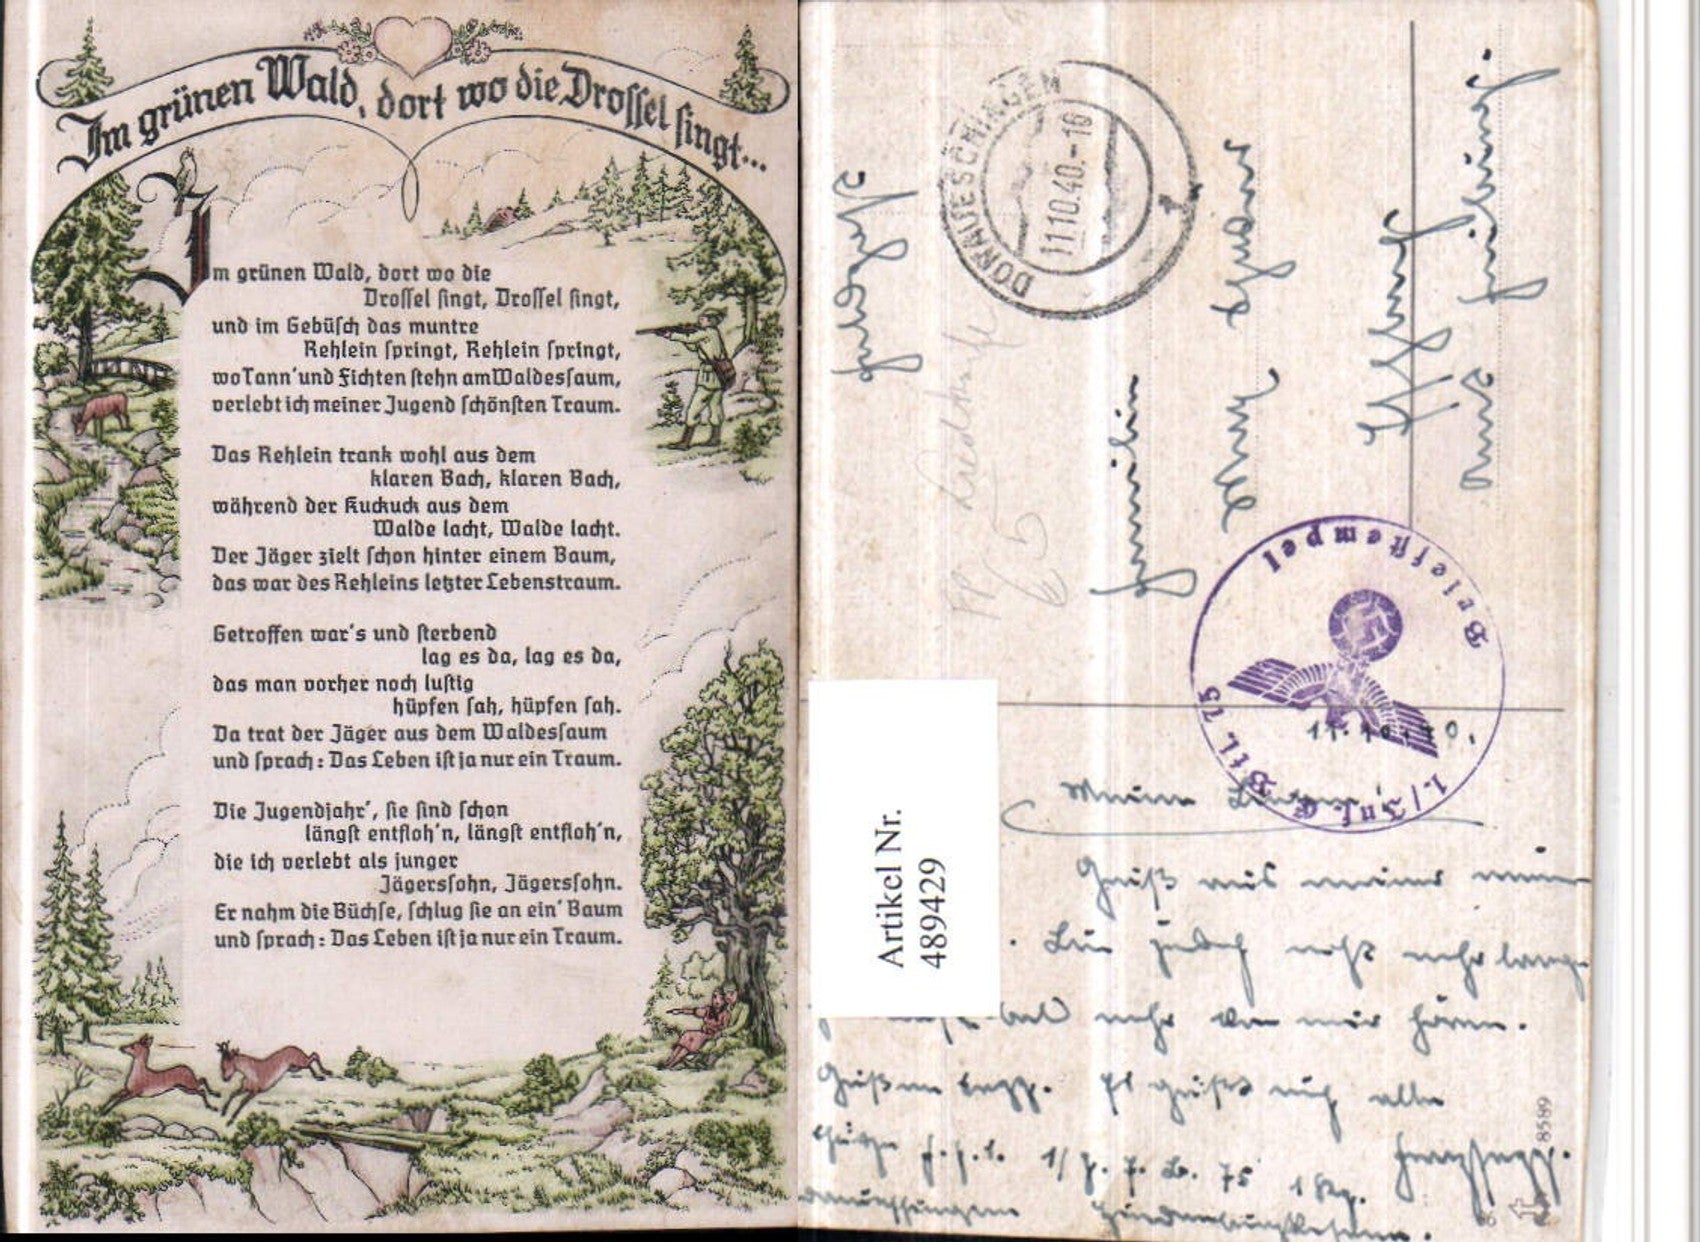 Im grünen Wald, dort wo die Drossel singt...
Im grünen Wald, dort wo die
Drossel singt, Drossel singt,
und im Gebüsch das muntre
Rehlein springt, Rehlein springt,
wo Tann' und Fichten stehn am Waldessaum,
verlebt ich meiner Jugend schönsten Traum.
Das Rehlein trank wohl aus dem
klaren Bach, klaren Bach,
während der Kuckuck aus dem
Walde lacht, Walde lacht.
Der Jäger zielt schon hinter einem Baum,
das war des Rehleins letzter Lebenstraum.
Getroffen war's und sterbend
lag es da, lag es da,
das man vorher noch lustig
hüpfen sah, hüpfen sah.
Da trat der Jäger aus dem Waldessaum
und sprach: Das Leben ist ja nur ein Traum.
Die Jugendjahr', sie sind schon
längst entfloh'n, längst entfloh'n,
die ich verlebt als junger
Jägerssohn, Jägerssohn.
Er nahm die Büchse, schlug sie an ein' Baum
und sprach: Das Leben ist ja nur ein Traum.
DONAUESCHINGEN
11.10.40.-16
Feldpost
Familie
Freiburg.
Briefstempel
1./Inf. E. Btl. 75
11.10.40.
Meine Lieben!
Gruß aus meiner
nicht mehr lange
mehr von mir hören.
Es grüßt Euch alle
75
Hindenburgkaserne.
Artikel Nr.
489429
8589